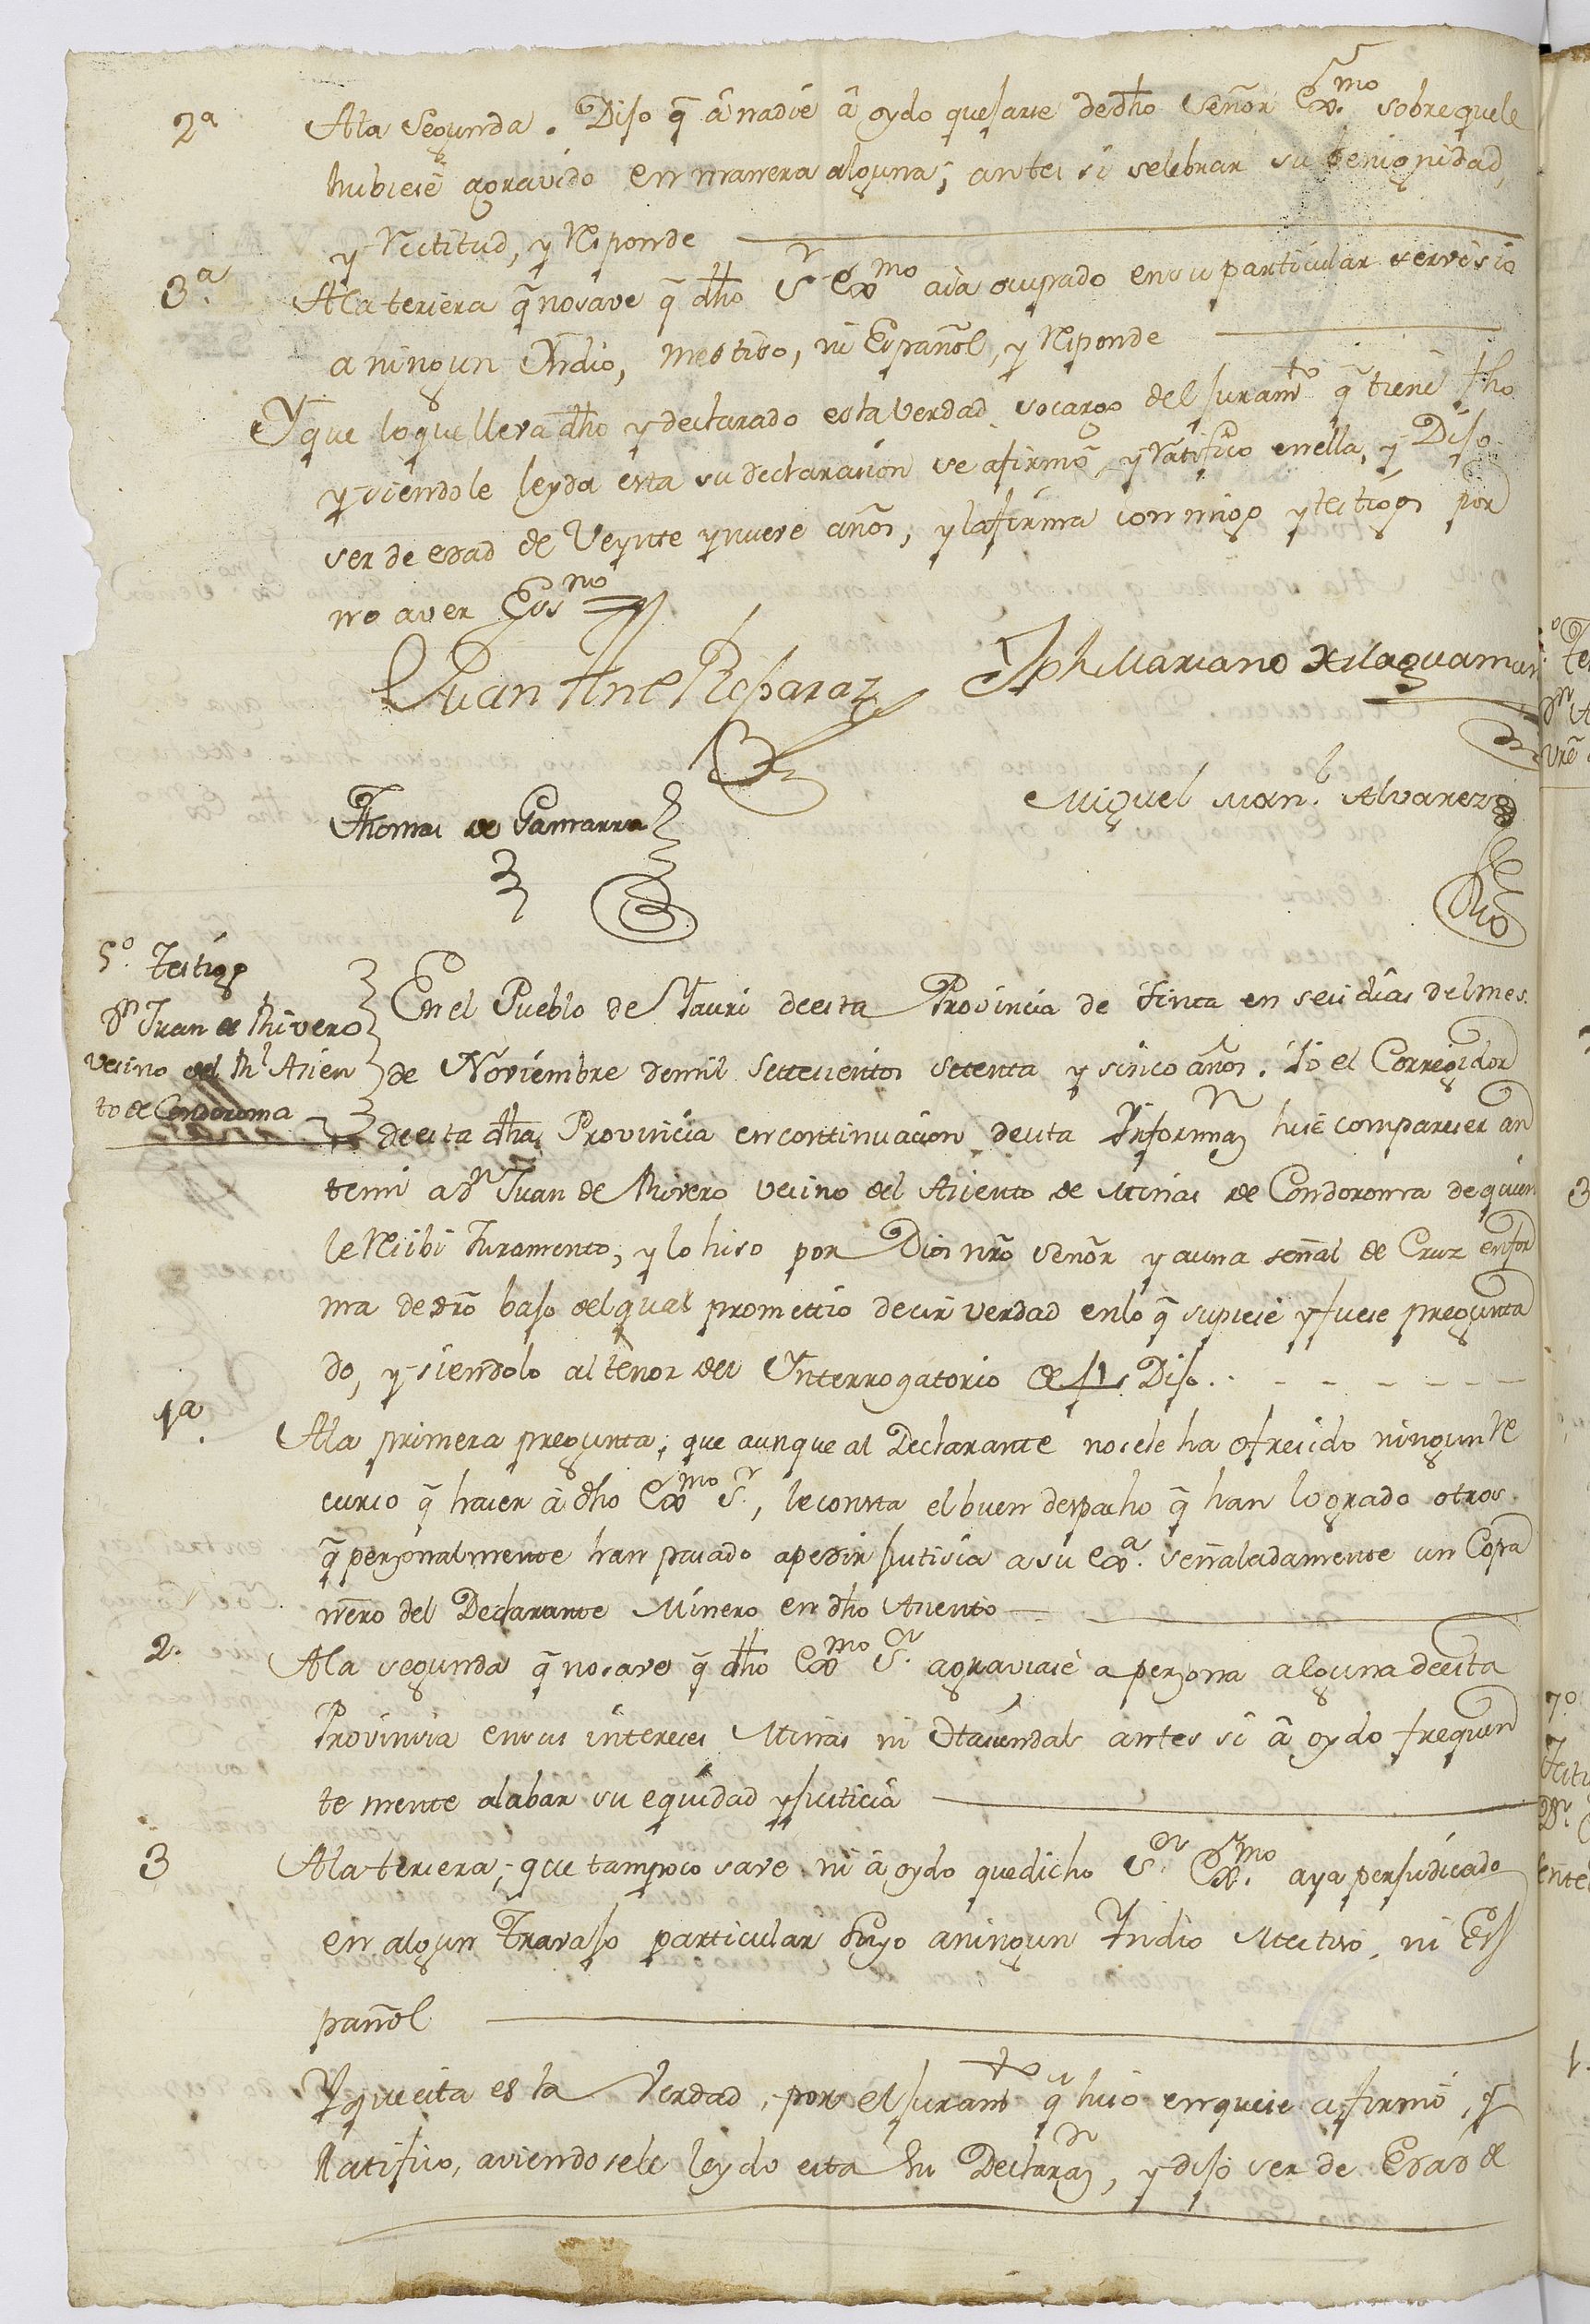 2ª Ala Segunda. Dijo q̃ â nadie â oydo quejarse dedho Señor Exmo. sobre quele
hubiese agraviado en manera alguna; antes si selebrar su benignidad,
y Rectitud, y Responde
3ª. Ala tersera q̃ nosave q̃ dho Sr Exmo aia ocupado ensu particular servisio
a ningun Yndio, mestiso, ni Español, y Responde
Y que loque lleva dho y declarado esla verdad socargo del juramto q̃ tiene fho
y siendole leyda esta su declarasion se afirmó, y Ratifico enella, y Dijo
ser de edad de Veynte y nueve años, y lafirma conmigo y testigos por
no aver Essno
Juan Anto Reparaz
Jph Mariano Xilaguaman
Miguel Manl. Alvarez
Thomas de Gamarra
5º. Testigo
Dn Juan de Rivero
Vecino del Rl Asien
to de Condoroma
En el Pueblo de Yauri deesta Provincia de Tinta en seis dias delmes
de Noviembre demil settecientos setenta y sinco años. Yo el Corregidor
deesta dha Provincia encontinuacion desta Informn hise comparecer an
temi a Dn Juan de Rivero vecino del Asiento de Minas de Condoroma dequien
le Resibi Juramento, y lo hiso por Dios nro Señor y auna señal de Cruz enfor
ma de dro bajo delqual promettio decir verdad enlo q̃ supiese y fuese pregunta
do, y siendolo altenor del Ynterrogatorio de f1 Dijo.
1ª. Ala primera pregunta, que aunque al Declarante nosele ha ofresido ningun Re
curso q̃ hacer â dho Exmo Sr., leconsta elbuen despacho q̃ han logrado otros
q̃ personalmente han pasado apedir justisia a su Exa. señaladamente un Compa
ñero del Declarante Minero en dho Asiento
2. Ala segunda q̃ nosave q̃ dho Exmo Sr. agraviase a persona alguna deesta
Provincia ensus intereses Minas ni Haciendas antes si â oydo frequen
te mente alabar su equidad y justicia
3 Ala tercera, que tampoco save ni â oydo quedicho Sr. Exmo. aya perjudicado
en algun Travajo particular suyo aningun Indio Mestiso, ni Es
pañol
Y que esta es la Verdad, por eljuramto q̃ hiso enquese afirmó, y
Ratifico, aviendosele leydo esta su Declaran, y dijo ser de Edad de